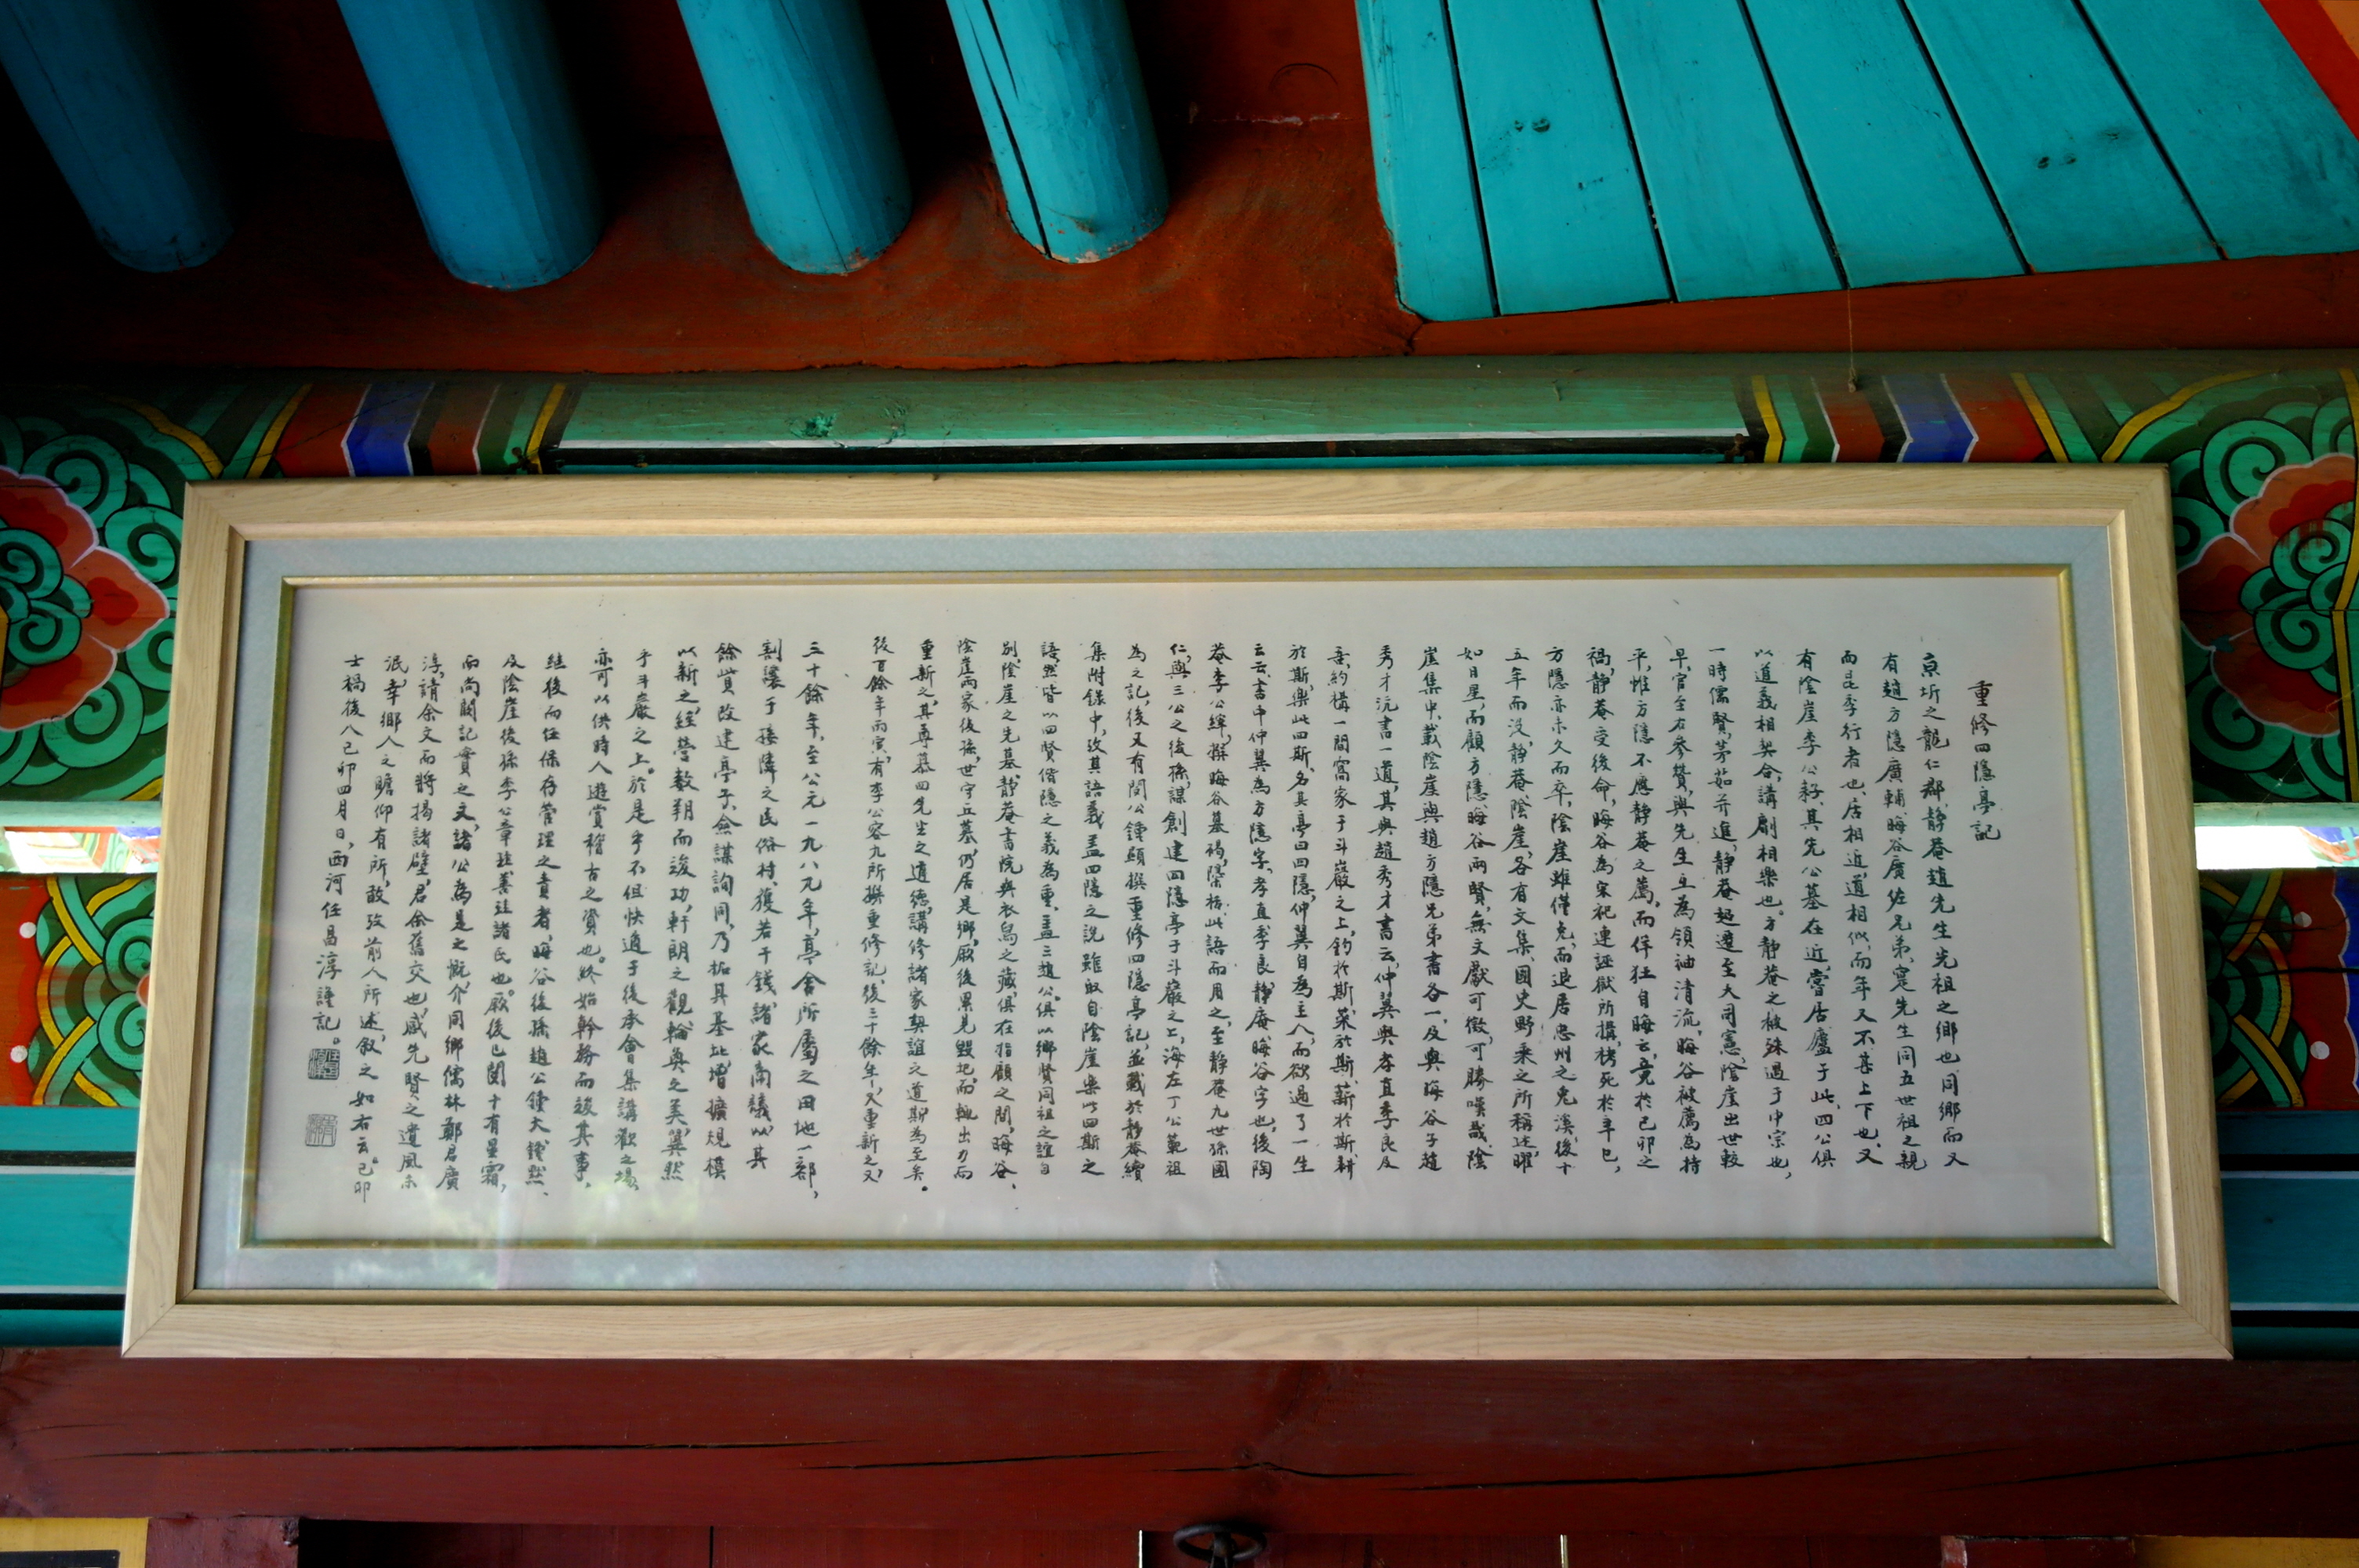 重修四隱亭記
京圻之龍仁郡靜菴趙先生先祖之鄉也同鄉而又
有趙方隱廣輔晦谷廣佐兄弟寔先生同五世祖之親
而昆季行者也居相近道相似而年又不甚上下也又
有陰崖李公耔其先公墓在近嘗居廬于此四公俱
以道義相契合講劘相樂也方靜菴之被殊遇于中宗也
一時儒賢茅茹幷進靜菴超遷至大司憲陰崖出世較
早官至右參贊與先生互為領袖清流晦谷被薦為持
平惟方隱不應靜菴之薦而佯狂自晦云竟於己卯之
禍靜菴受後命晦谷為宋祀連誣獄所搆栲死於辛巳
方隱亦未久而卒陰崖雖僅免而退居忠州之兎溪後十
五年而沒靜菴陰崖各有文集國史野乘之所稱述曜
如日星而顧方隱晦谷兩賢無文獻可徵可勝嘆哉陰
崖集中載陰崖與趙方隱兄弟書各一及與晦谷子趙
秀才沆書一道其與趙秀才書云仲翼與孝直季良及
吾約構一間窩家于斗巖之上釣於斯菜於斯薪於斯耕
於斯樂此四斯名其亭曰四隱仲翼自為主人而欲過了一生
云云書中仲翼為方隱字孝直季良靜庵晦谷字也後陶
菴李公縡撰晦谷墓碣檃括此語而用之至靜菴九世孫國
仁與三公之後孫謀創建四隱亭于斗巖之上海左丁公範祖
為之記後又有閔公鍾顯撰重修四隱亭記並載於靜菴續
集附錄中攷其語義盖四隱之說雖取自陰崖樂此四斯之
語然皆以四賢偕隱之義為重盖三趙公俱以鄉賢同祖之誼自
別陰崖之先墓靜菴書院與衣舄之藏俱在指顧之間晦谷
陰崖兩家後孫世守丘墓仍居是鄉厥後累見毀圮而輒出力而
重新之其尊慕四先生之道德講修諸家契誼之道斯為至矣
後百餘年丙寅有李公容九所撰重修記後三十餘年又重新之又
三十餘年至公元一九八九年亭舍所屬之田地一部
割讓于接隣之民俗村獲若干錢諸家商議以其
餘貲改建亭子僉謀詢同乃拓其基址增擴規模
以新之經營數朔而竣功軒朗之觀輪奐之美翼然
乎斗巖之上於是乎不但快適于後承會集講歡之場
亦可以供時人遊賞稽古之資也終始幹務而竣其事
繼後而任保存管理之責者晦谷後孫趙公鍾大鍾然
及陰崖後孫李公章珪善珪諸氏也厥後已閱十有星霜
而尚闕記實之文諸公為是之慨介同鄉儒林鄭君廣
淳請余文而將揭諸壁君余舊交也感先賢之遺風未
泯幸鄉人之瞻仰有所敢攷前人所述叙之如右云己卯
士禍後八己卯四月日西河任昌淳謹記